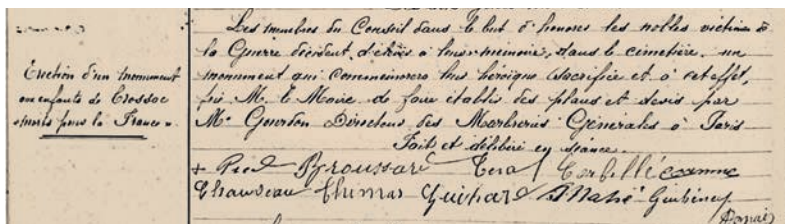 Erection d'un monument
aux enfants de Crossac
morts pour la France.
Les membres du Conseil dans le but d'honorer les nobles victimes de
la Guerre décident d'élever à leur mémoire, dans le cimetière, un
monument qui commémorera leur héroïque sacrifice et à cet effet,
prie M. le Maire de faire établir des plans et devis par
Mr Gourdon Directeur des Marbreries Générales à Paris
Fait et délibéré en séance.
Broussard
Chauveau Thomas Guihard Mahé